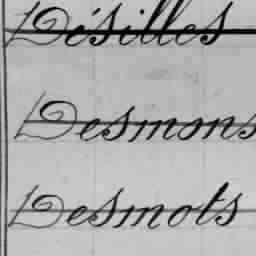 Désilles
Desmons
Desmots